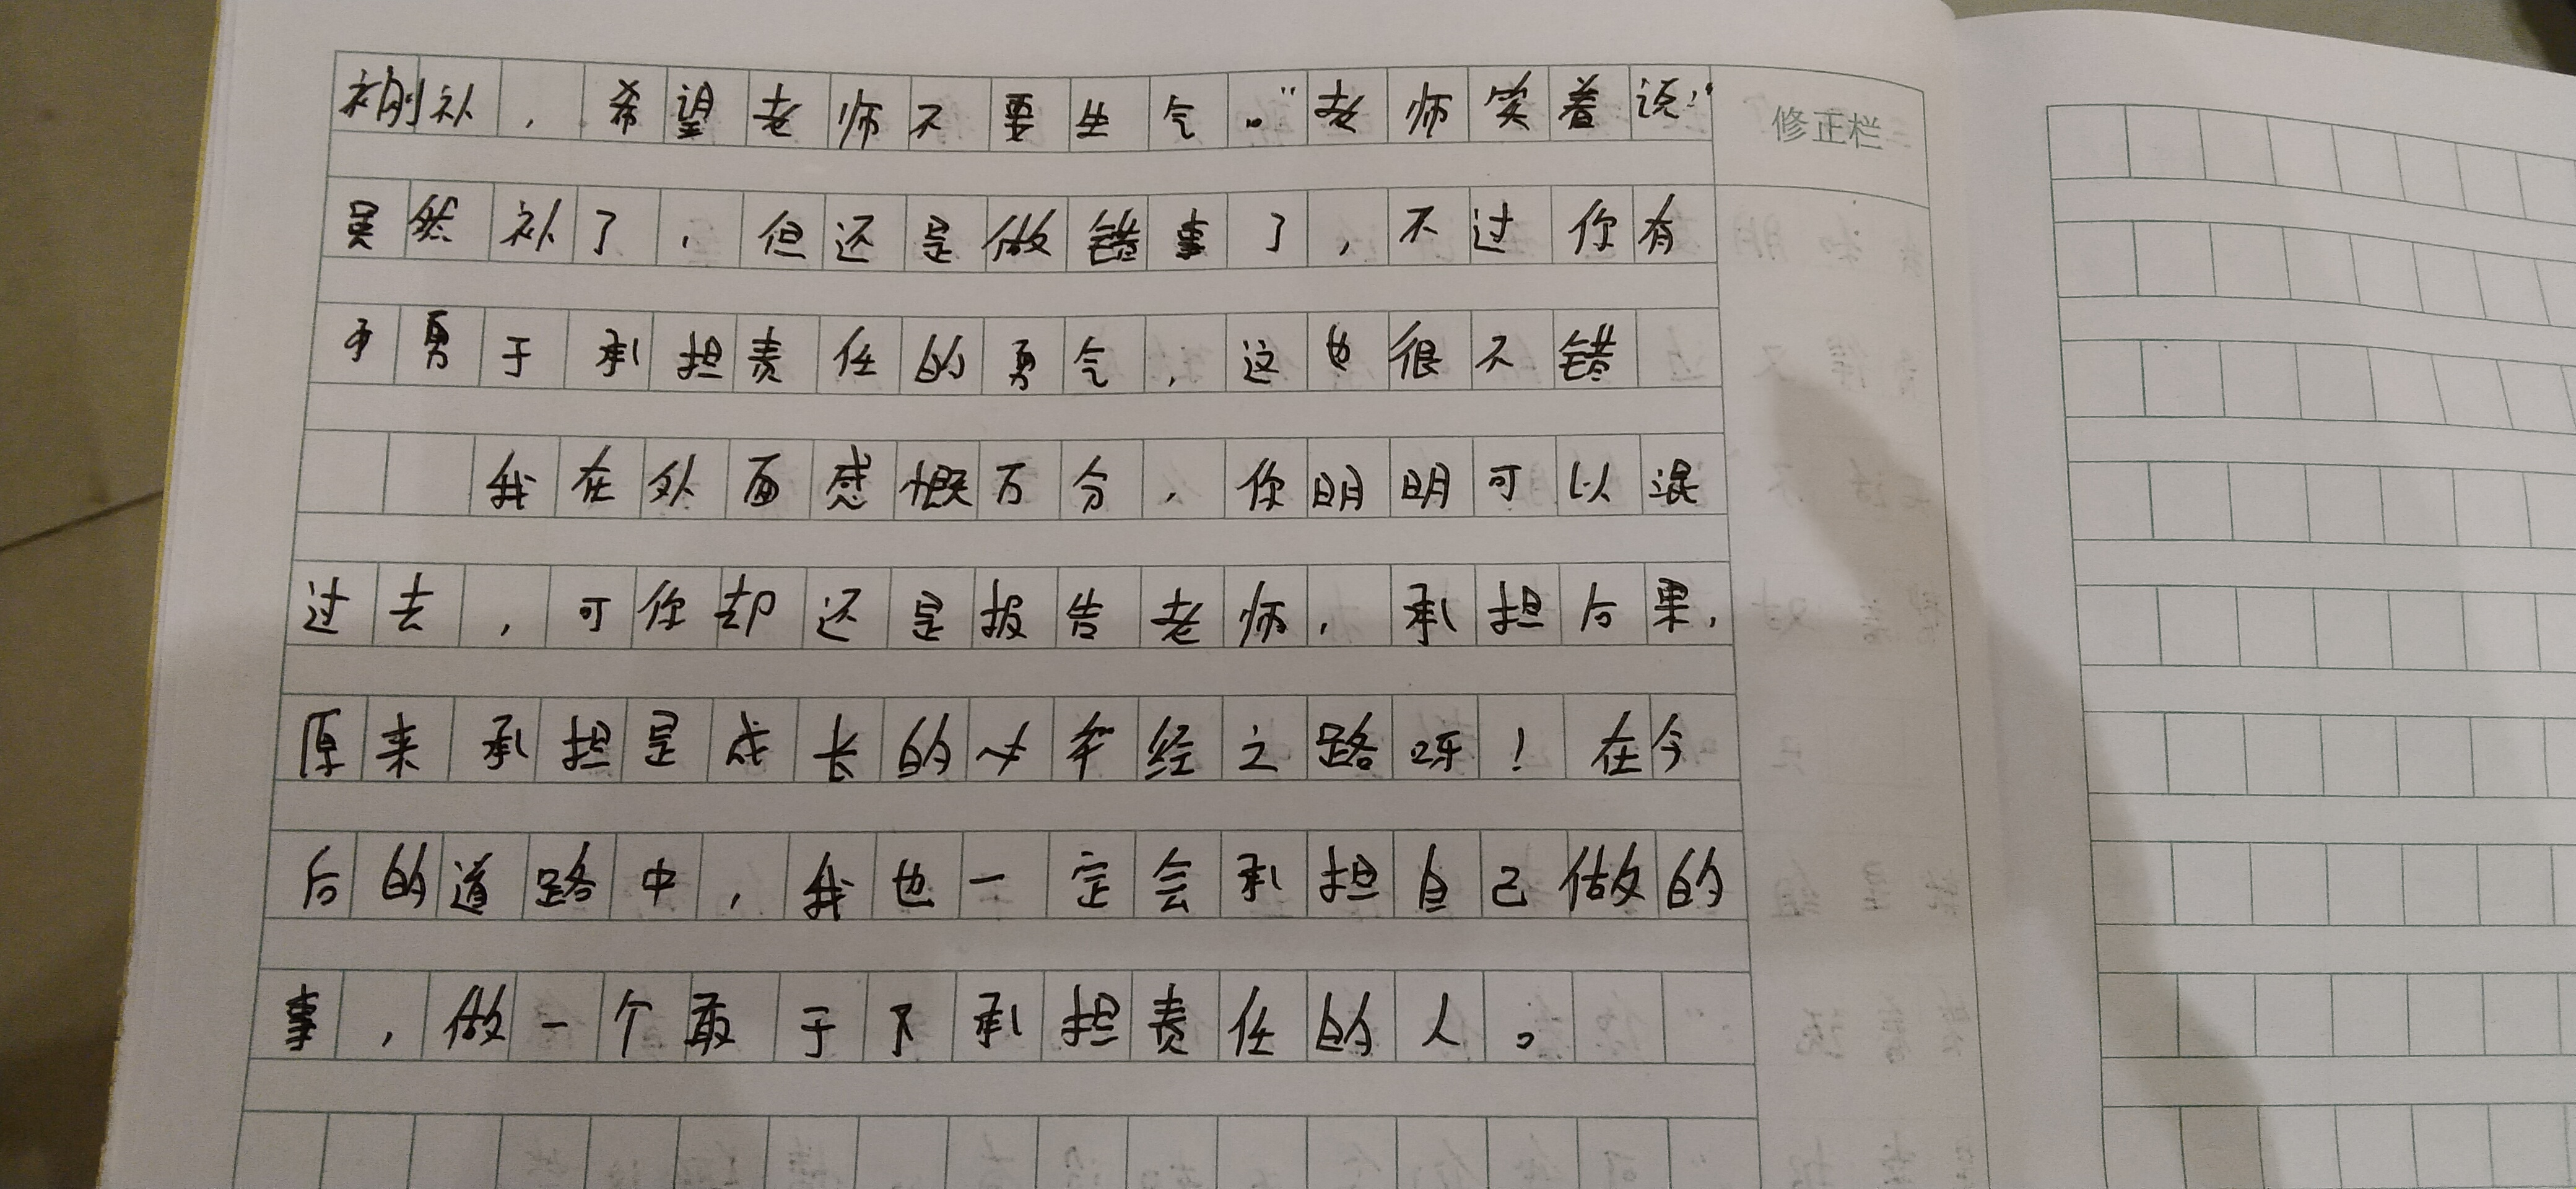 刚补，希望老师不要生气。"老师笑着说："
虽然补了，但还是做错事了，不过你有
勇于承担责任的勇气，这也很不错
我在外面感慨万分，你明明可以混
过去，可你却还是报告老师，承担后果，
原来承担是成长的必经之路呀！在今
后的道路中，我也一定会承担自己做的
事，做一个敢于承担责任的人。
修正栏